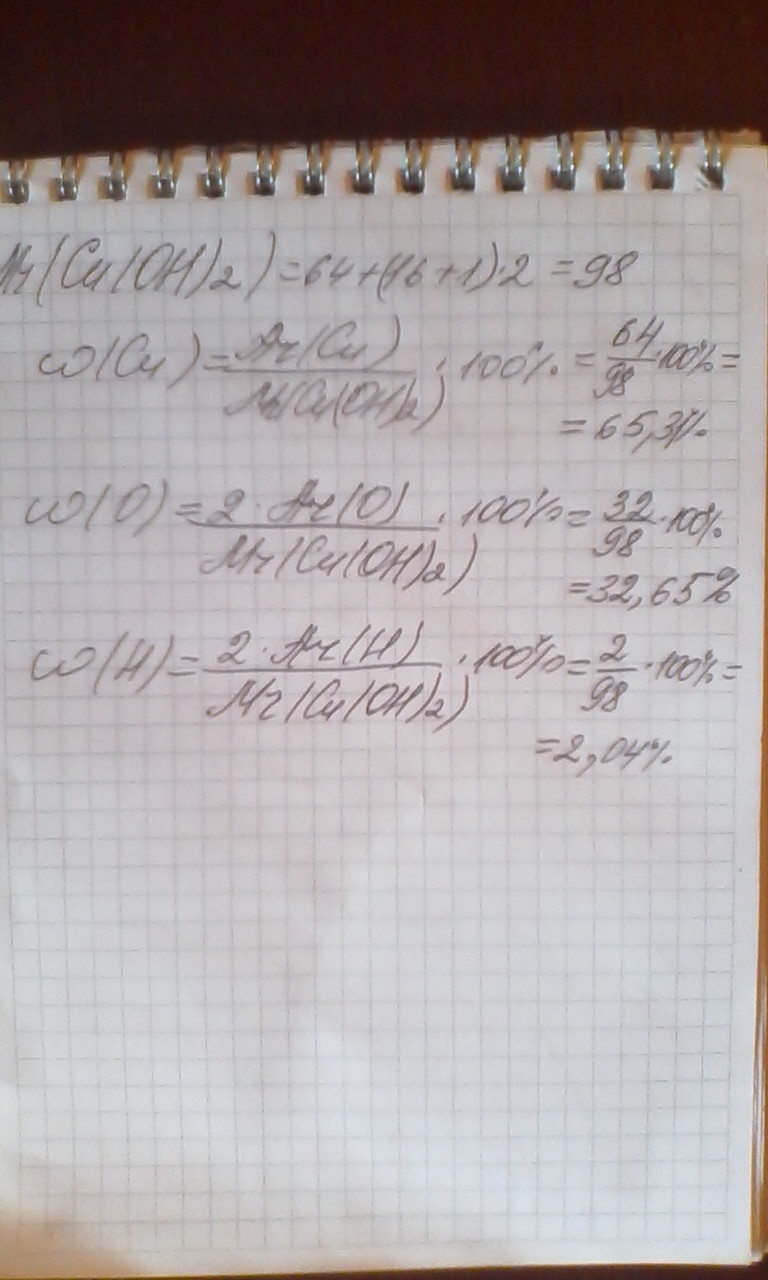 Mr(Cu(OH)2)=64+(16+1)·2=98
ω(Cu)=Ar(Cu)/Mr(Cu(OH)2)·100%=64/98·100%=
=65,31%
ω(O)=2·Ar(O)/Mr(Cu(OH)2)·100%=32/98·100%
=32,65%
ω(H)=2·Ar(H)/Mr(Cu(OH)2)·100%=2/98·100%=
=2,04%